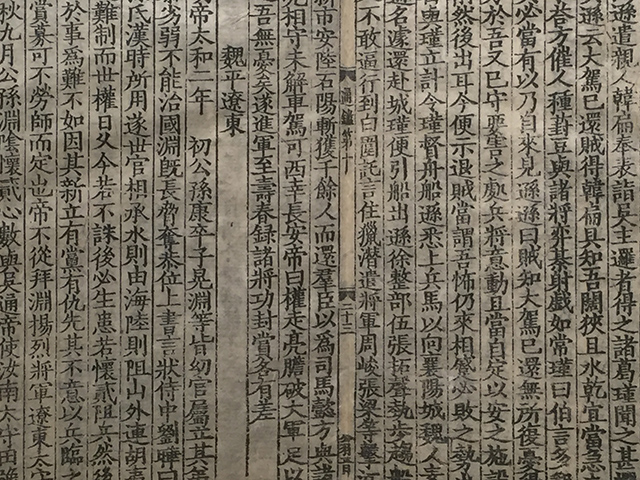 遜遣親人韓扁奉表詣吳主邏者得之諸葛瑾聞之甚
遜云大駕已還賊得韓扁具知吾闊狹且水乾宜當急去
荅方催人種葑豆與諸將弈棊射戲如常瑾曰伯言多
必當有以乃自來見遜遜曰賊知大駕已還無所復憂得
於吾又已守要害之處兵將意動且當自定以安之施設
然後出耳今便示退賊當謂吾怖仍來相蹙必敗之勢
與瑾立計令瑾督舟船遜悉上兵馬以向襄陽城魏人素
遜名遽還赴城瑾便引船出遜徐整部伍張拓聲勢步趨船
不敢逼行到白圍託言住獵潛遣將軍周峻張梁等擊
新市安陸石陽斬獲千餘人而還羣臣以為司馬懿方與諸
亮相守未解車駕可西幸長安帝曰權走亮膽破大軍足以
吾無憂矣遂進軍至壽春録諸將功封賞各有差
通鑑第十 十三
魏平遼東
帝太和二年 初公孫康卒子晃淵等皆幼官屬立其弟
恭劣弱不能治國淵旣長脅奪恭位上書言狀侍中劉曄曰
氏漢時所用遂世官相承水則由海陸則阻山外連胡
難制而世權日久今若不誅後必生患若懷貳阻兵然後
於事為難不如因其新立有黨有仇先其不意以兵臨之
賞募可不勞師而定也帝不從拜淵揚烈將軍遼東太守
秋九月公孫淵陰懷貳心數與吳通帝使汝南太守田豫